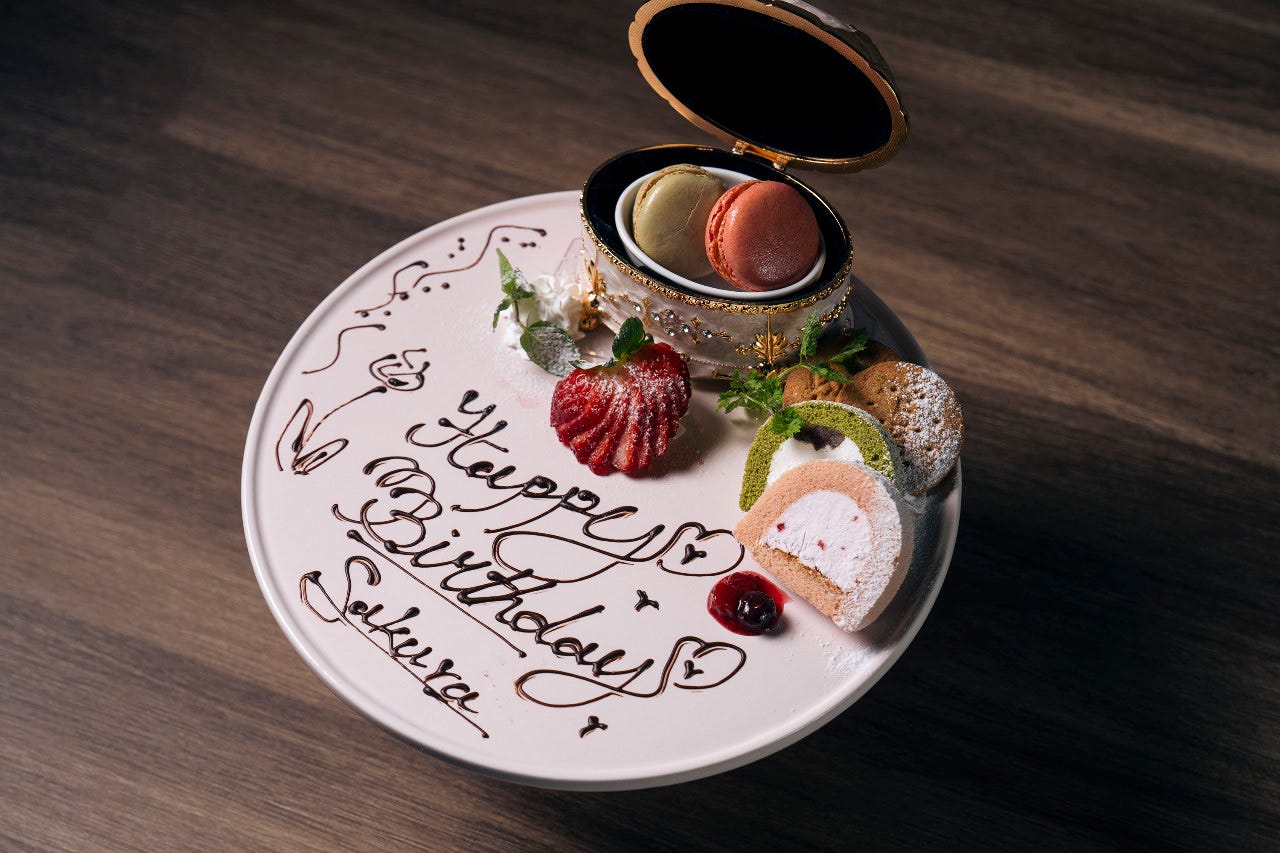 Happy
Birthday
Sakura